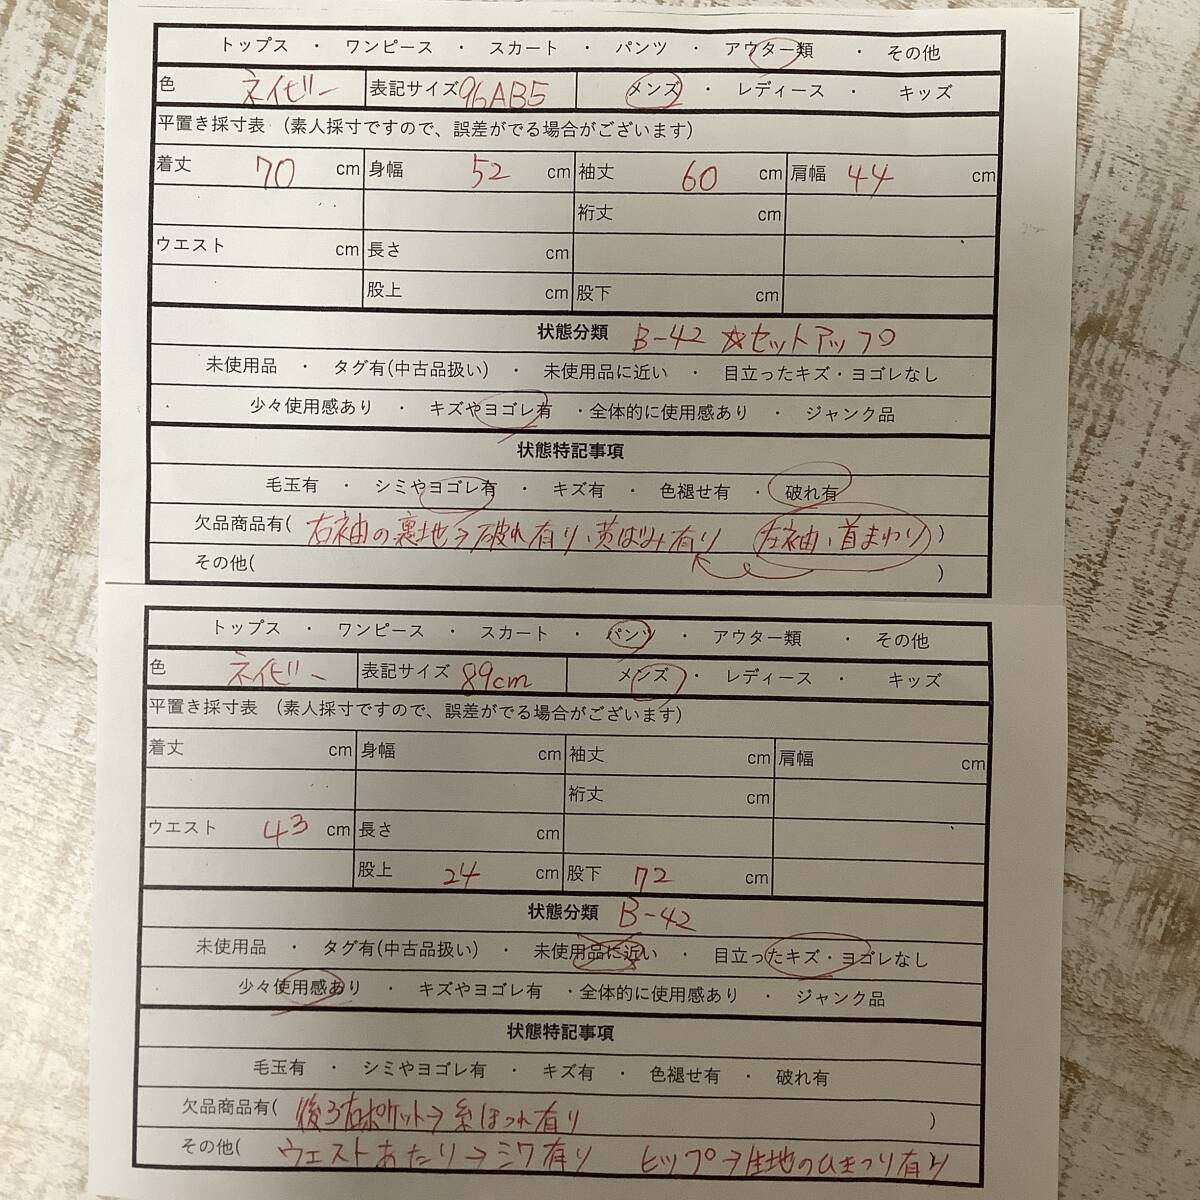 トップス ・ ワンピース ・ スカート ・ パンツ ・ アウター類 ・ その他
色 ネイビー 表記サイズ 96AB5 メンズ ・ レディース ・ キッズ
平置き採寸表 (素人採寸ですので、誤差がでる場合がございます)
着丈 70 cm 身幅 52 cm 袖丈 60 cm 肩幅 44 cm
裄丈 cm
ウエスト cm 長さ cm
股上 cm 股下 cm
状態分類 B-42 ☆セットアップ
未使用品 ・ タグ有(中古品扱い) ・ 未使用品に近い ・ 目立ったキズ・ヨゴレなし
少々使用感あり ・ キズやヨゴレ有 ・全体的に使用感あり ・ ジャンク品
状態特記事項
毛玉有 ・ シミやヨゴレ有 ・ キズ有 ・ 色褪せ有 ・ 破れ有
欠品商品有( 右袖の裏地→破れ有り、黄ばみ有り 左袖、首まわり )
その他( )
トップス ・ ワンピース ・ スカート ・ パンツ ・ アウター類 ・ その他
色 ネイビー 表記サイズ 89cm メンズ ・ レディース ・ キッズ
平置き採寸表 (素人採寸ですので、誤差がでる場合がございます)
着丈 cm 身幅 cm 袖丈 cm 肩幅 cm
裄丈 cm
ウエスト 43 cm 長さ cm
股上 24 cm 股下 72 cm
状態分類 B-42
未使用品 ・ タグ有(中古品扱い) ・ 未使用品に近い ・ 目立ったキズ・ヨゴレなし
少々使用感あり ・ キズやヨゴレ有 ・全体的に使用感あり ・ ジャンク品
状態特記事項
毛玉有 ・ シミやヨゴレ有 ・ キズ有 ・ 色褪せ有 ・ 破れ有
欠品商品有( 後ろ右ポケット→糸ほつれ有り )
その他( ウエストあたり→シワ有り ヒップ→生地のひきつり有り